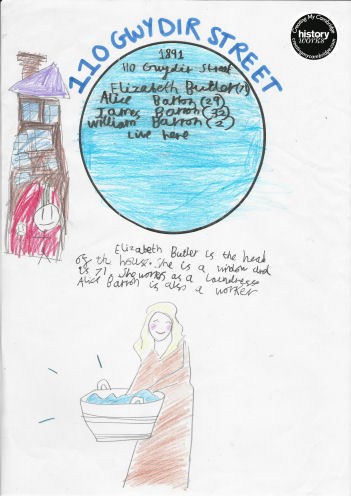 Creating My Cambridge
history
works
creatingmycambridge.com
110 GWYDIR STREET
1891
110 Gwydir Street
Elizabeth Butler (71)
Alice Barron (29)
James Barron (32)
William Barron (2)
Live here
Elizabeth Butler is the head
of the house. She is a window and
is 71. She works as a laundress
Alice Barron is also a worker